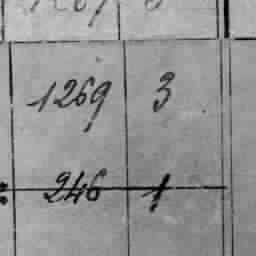 1269 3
246 1